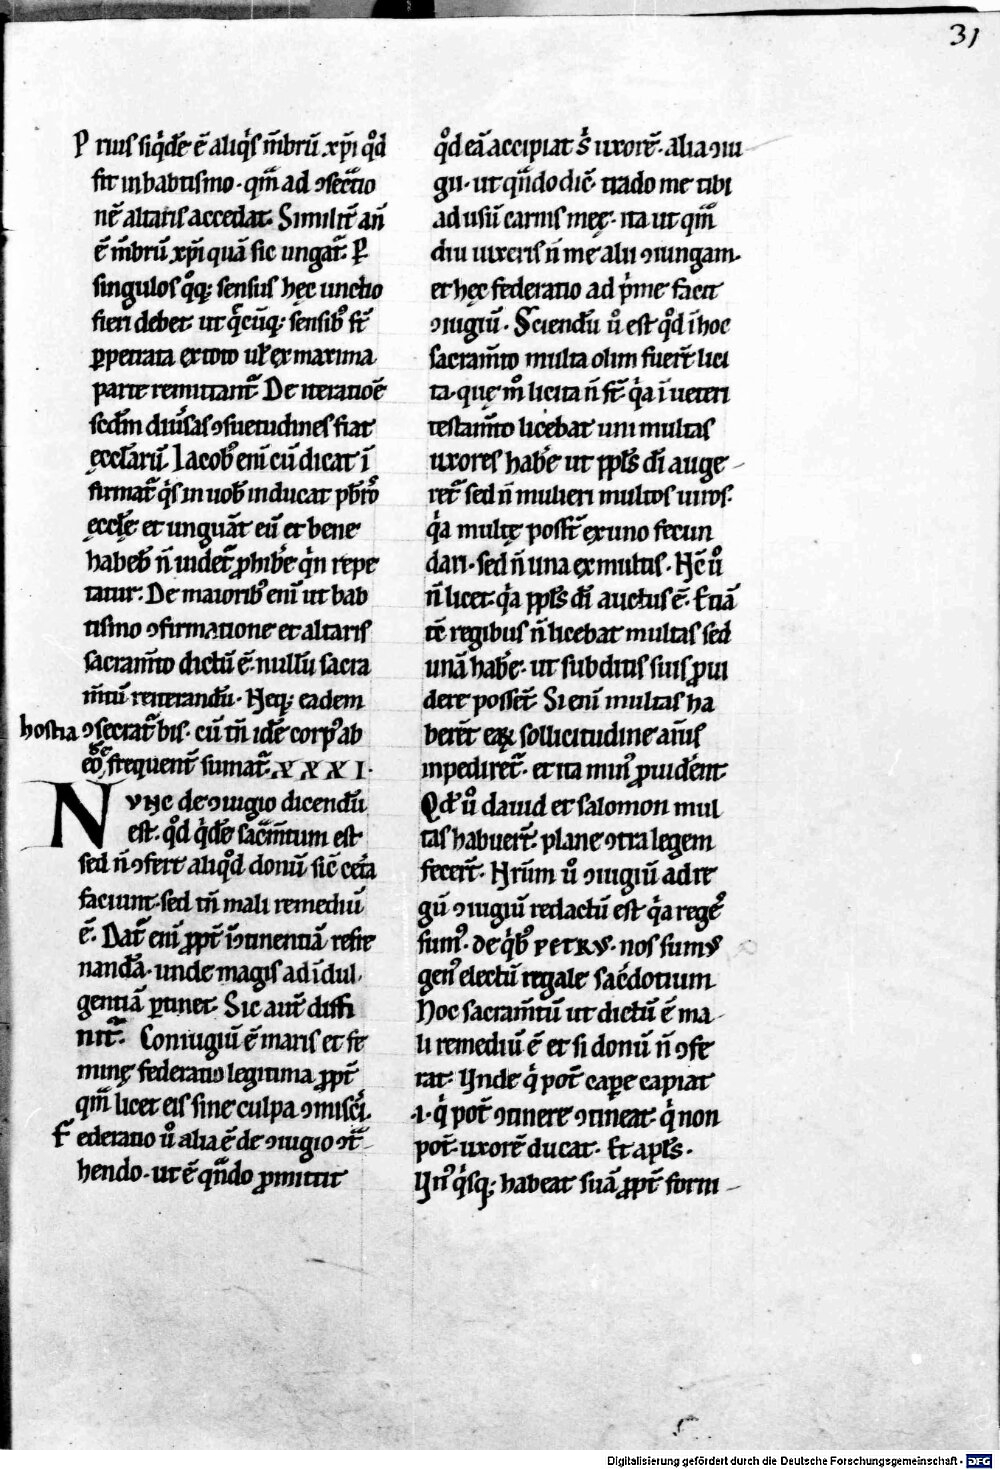 31
P rius siq̾dē ē aliq̾s m̄brū xp̄i qd̾
fit in babtismo · qm̄ ad ↄsecr̄tio
nē altaris accedat. Similit̄ añ
ē m̄brū xp̄i quā sic ungat᷑. P̄
singulos q̊q; sensus hęc unctio
fieri debet. ut q̾cūq; sensibꝰ st̄
ꝑpetrata ex toto uł ex maxima
parte remittant᷑. De iteratiōe
scdm̄ diūsas ↄsuetudines fiat
ęccłarū. Iacobꝰ enī cū dicat ī
firmat᷑ q̾s in uobꝰ inducat pb̄rōꝰ
ęccłę et unguāt eū et bene
habebꝰ ñ uidet᷑ ꝓhibe̾ q̾n repe
tatur. De maioribꝰ enī ut bab
tismo ↄfirmatione et altaris
sacram̄to dictū ē. nullū sacra
m̄tū reiterandū. Neq; eadem
hostia ↄsecrat᷑ bis. cū tn̄ idē corpꝰ ab
eo frequent̄ sumat᷑. XXXI.
NVNC de ↄiugio dicendū
est. qd̾ q̾dē sacm̄tum est
sed ñ ↄfert aliqd̾ donū sic̄ cet̾a
faciunt. sed tn̄ mali remediū
ē. Dat᷑ enī ꝓpt̄ īↄtinentiā refre
nandā. unde magis ad īdul,
gentiā ꝑtinet. Sic aut̄ diffi
nit᷑. Coniugiū ē maris et fe
minę federatio legitima ꝓpt̄
qm̄ licet eis sine culpa ↄmisc̾i.
F ederatio ů alia ē de ↄiugio ↄt̄
hendo. ut ē qn̄do ꝓmittit
qd̾ eā accipiat s̾ uxorē. alia ↄiu
gii. ut qn̄do dic̄. trado me tibi
ad usū carnis meę. ita ut qm̄
diu uixeris ñ me alii ↄiungam.
et hęc federatio ad p̾me facit
ↄiugiū. Sciendū ů est qd̾ ī hoc
sacram̄to multa olim fuer̄t lici
ta. quę m̊ licita ñ st̄. q̾a ī ueteri
testam̄to licebat uni multas
uxores habe̾ ut ppłs dī auge
ret᷑ sed ñ mulieri multos uiros.
q̾a multę poss̄t ex uno fecun
dari. sed ñ una ex multis. Hc̄ ů
ñ licet. q̾a ppłs dī auctus ē. Etiā
tc̄ regibus ñ licebat multas sed
unā habe̾. ut subditis suis ꝓui
dere posset̄. Si enī multas ha
beret̄ eaꝝ sollicitudine animꝰs
inpediret᷑. et ita minꝰ ꝓuident̄.
Qd̾ ů dauid et salomon mul
tas habuer̄t. plane ↄtra legem
fecer̄t. Nrūm ů ↄiugiū ad re
gū ↄiugiū redactū est q̾a regeſꝰ
sumꝰ. de q̾bꝰ PETRVS. nos sumꝰ
genꝰ electū regale sac̾dotium
Hoc sacram̄tū ut dictū ē ma
li remediū ē et si donū ñ ↄfe
rat. Vnde q̾ pot̄ cape̾ capiat
.i. q̾ pot̄ ↄtinere ↄtineat. q̾ non
pot̄. uxorē ducat. Et apłs.
Vnꝰ q̾sq; habeat suā ꝓpt̄ forni
Digitalisierung gefördert durch die Deutsche Forschungsgemeinschaft - DFG